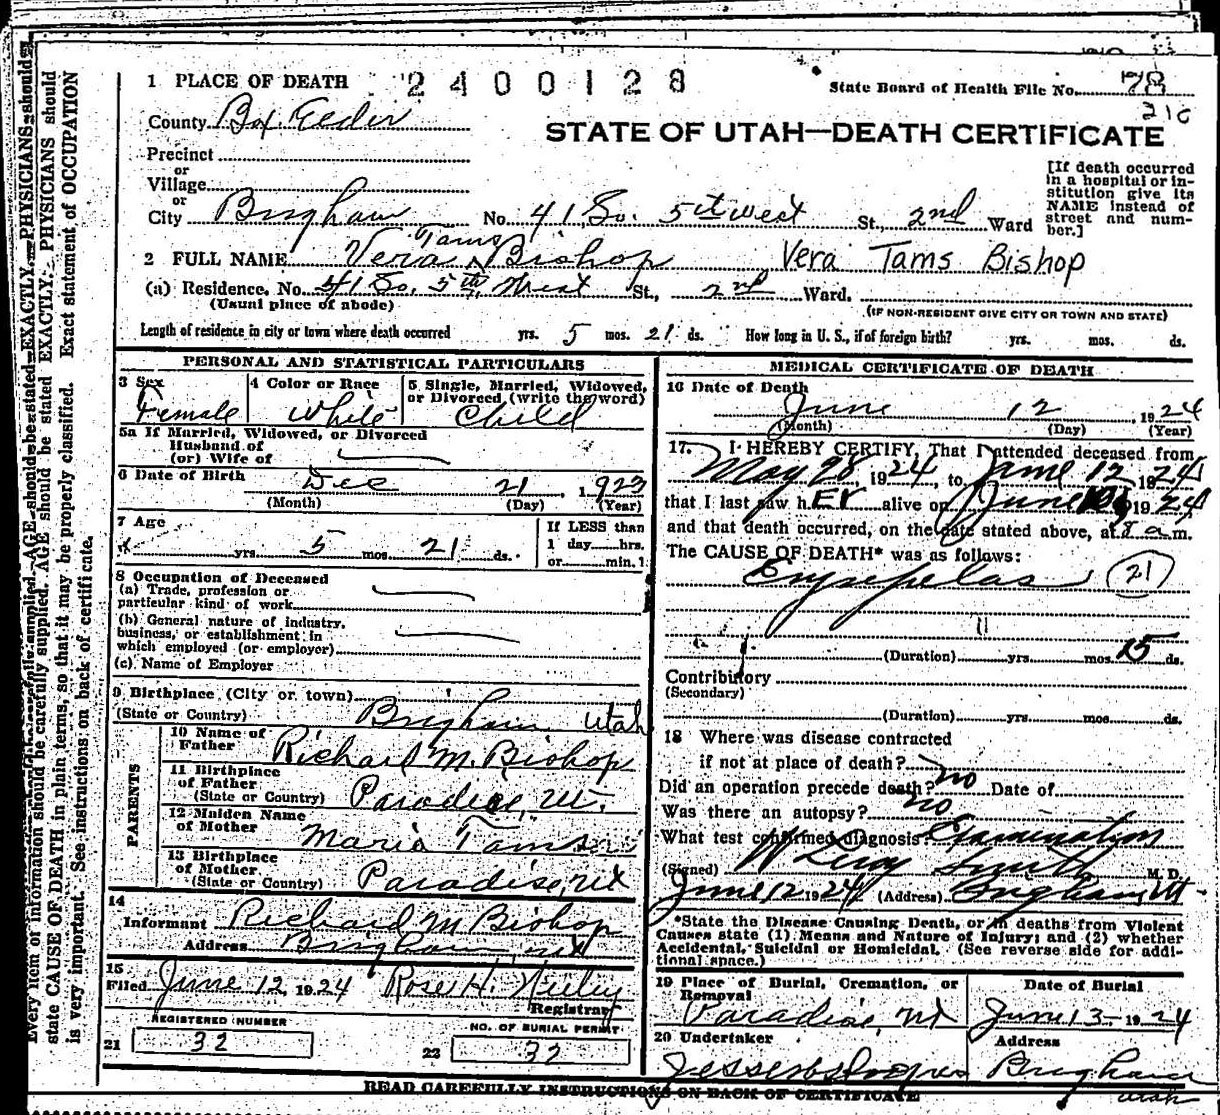 1 PLACE OF DEATH 2400128
State Board of Health File No. 78
216
County Box Elder
STATE OF UTAH—DEATH CERTIFICATE
Precinct
or
Village
or
City Brigham No. 41 So. 5th West St., 2nd Ward
[If death occurred
in a hospital or in-
stitution give its
NAME instead of
street and num-
ber.]
2 FULL NAME Vera Tams Bishop Vera Tams Bishop
(a) Residence, No. 41 So. 5th West St., 2nd Ward.
(Usual place of abode) (IF NON-RESIDENT GIVE CITY OR TOWN AND STATE)
Length of residence in city or town where death occurred yrs. 5 mos. 21 ds. How long in U. S., if of foreign birth? yrs. mos. ds.
PERSONAL AND STATISTICAL PARTICULARS
3 Sex
Female
4 Color or Race
White
5 Single, Married, Widowed,
or Divorced (write the word)
Child
5a If Married, Widowed, or Divorced
Husband of
(or) Wife of
6 Date of Birth Dec 21, 1923
(Month) (Day) (Year)
7 Age
yrs. 5 mos. 21 ds.
If LESS than
1 day hrs.
or min.
8 Occupation of Deceased
(a) Trade, profession or
particular kind of work
(b) General nature of industry,
business, or establishment in
which employed (or employer)
(c) Name of Employer
9 Birthplace (City or town)
(State or Country) Brigham Utah
PARENTS
10 Name of
Father Richard M. Bishop
11 Birthplace
of Father
(State or Country) Paradise, Ut.
12 Maiden Name
of Mother Maria Tams
13 Birthplace
of Mother
(State or Country) Paradise, Ut
14
Informant Richard M Bishop
Address Brigham, Ut
15
Filed June 12, 1924 Rose H. Neeley
Registrar
REGISTERED NUMBER
21 32
NO. OF BURIAL PERMIT
22 32
MEDICAL CERTIFICATE OF DEATH
16 Date of Death
June 12, 1924
(Month) (Day) (Year)
17. I HEREBY CERTIFY, That I attended deceased from
May 28, 1924, to June 12 1924
that I last saw hEr alive on June 1924
and that death occurred, on the date stated above, at 8 a m.
The CAUSE OF DEATH* was as follows:
Erysepelas (21)
(Duration) yrs. mos. 15 ds.
Contributory
(Secondary)
(Duration) yrs. mos. ds.
18 Where was disease contracted
if not at place of death?
Did an operation precede death? no Date of
Was there an autopsy? no
What test confirmed diagnosis? Examination
(Signed) W Leroy Smith M. D.
June 12 1924 (Address) Brigham, Ut
*State the Disease Causing Death, or in deaths from Violent
Causes state (1) Means and Nature of Injury; and (2) whether
Accidental, Suicidal or Homicidal. (See reverse side for addi-
tional space.)
19 Place of Burial, Cremation, or
Removal
Paradise, Ut
Date of Burial
June 13 1924
20 Undertaker
Address
Brigham
Utah
READ CAREFULLY INSTRUCTIONS ON BACK OF CERTIFICATE
Every item of information should be carefully supplied. AGE should be stated EXACTLY. PHYSICIANS should
state CAUSE OF DEATH in plain terms, so that it may be properly classified. Exact statement of OCCUPATION
is very important. See instructions on back of certificate.